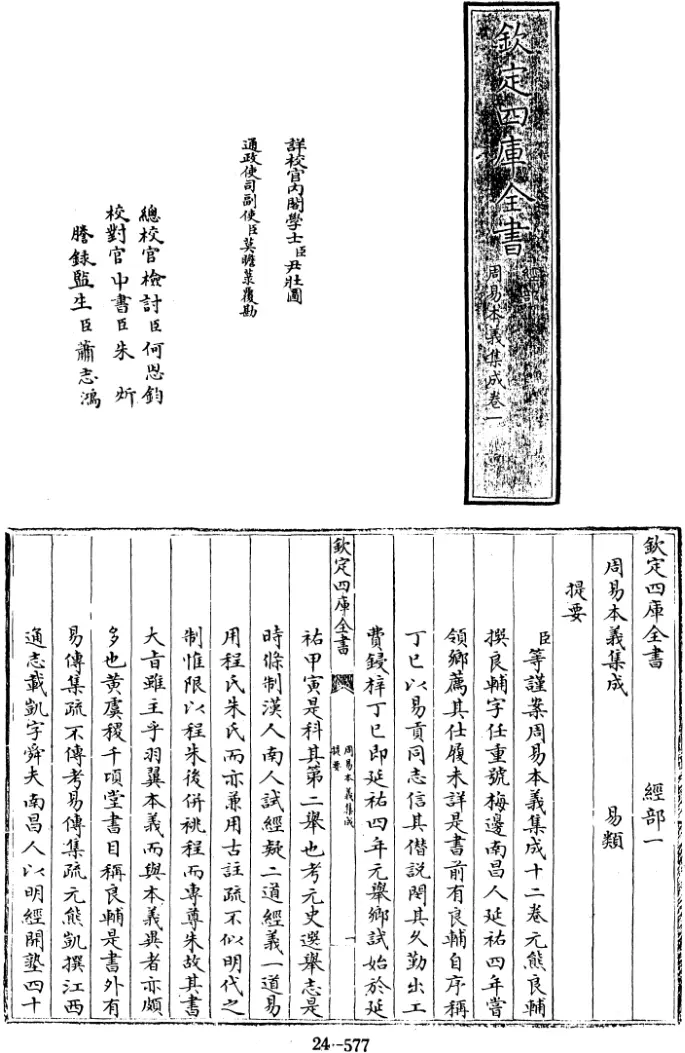 欽定四庫全書
經部
周易本義集成卷一
詳校官内閣學士臣尹壯圖
通政使司副使臣莫瞻菉覆勘
總校官檢討臣何思鈞
校對官中書臣朱炘
謄錄監生臣蕭志鴻
欽定四庫全書 經部一
周易本義集成 易類
提要
臣等謹案周易本義集成十二卷元熊良輔
撰良輔字任重號梅邊南昌人延祐四年嘗
領鄉薦其仕履未詳是書前有良輔自序稱
丁巳以易貢同志信其僭説閔其久勤出工
費鋟梓丁巳即延祐四年元舉鄉試始於延
欽定四庫全書
周易本義集成
提要
一
祐甲寅是科其第二舉也考元史選舉志是
時條制漢人南人試經疑二道經義一道易
用程氏朱氏而亦兼用古註疏不似明代之
制惟限以程朱後併祧程而專尊朱故其書
大旨雖主乎羽翼本義而與本義異者亦頗
多也黄虞稷千頃堂書目稱良輔是書外有
易傳集疏不傳考易傳集疏元熊凱撰江西
通志載凱字舜夫南昌人以明經開塾四十
24-577